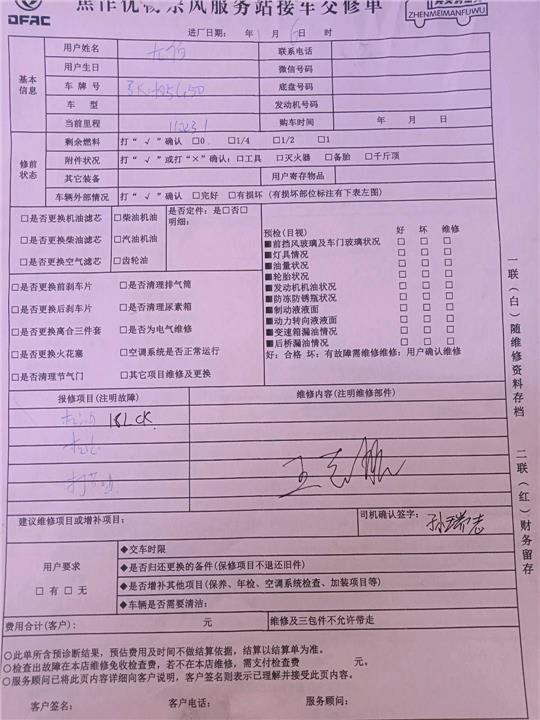 焦作优晟东风服务站接车交修单
DFAC
ZHENMEIMANFUWU
进厂日期： 年 1 6 日
基本信息
用户姓名 联系电话
用户生日 微信号码
车 牌 号 底盘号码
车 型 发动机号码
当前里程 购车时间 年 月 日
修前状态
剩余燃料 打“ √ ”确认 □0 □1/4 □1/2 □1
附件状况 打“ √ ”或打“×”确认：□工具 □灭火器 □备胎 □千斤顶
其它装备 用户寄存物品
车辆外部情况 打“ √ ”确认 □完好 □有损坏 (有损坏部位标注有下表左图)
□是否更换机油滤芯 □柴油机油 是否定件：是□否□
明细：
□是否更换柴油滤芯 □汽油机油
□是否更换空气滤芯 □齿轮油
预检(目视) 好 坏 维修
■前挡风玻璃及车门玻璃状况 □ □ □
■灯具情况 □ □ □
■油量状况 □ □ □
■轮胎状况 □ □ □
■发动机机油状况 □ □ □
■防冻防锈瓶状况 □ □ □
■制动液液面 □ □ □
■动力转向液液面 □ □ □
■变速箱漏油情况 □ □ □
■后桥漏油情况 □ □ □
好：合格 坏：有故障需维修维修：用户确认维修
□是否更换前刹车片 □是否清理排气筒
□是否更换后刹车片 □是否清理尿素箱
□是否更换离合三件套 □是否为电气维修
□是否更换火花塞 □空调系统是否正常运行
□是否清理节气门 □其它项目维修及更换
报修项目(注明故障) 维修内容(注明维修部件)
18LCK
建议维修项目或增补项目： 司机确认签字： 孙瑞志
用户要求
□ 有 □ 无
◆交车时限
◆是否归还更换的备件(保修项目不退还旧件)
◆是否增补其他项目(保养、年检、空调系统检查、加装项目等)
◆车辆是否需要清洁：
费用合计(客户)： 元 维修及三包件不允许带走
○此单所含预诊断结果，预估费用及时间不做结算依据，结算以结算单为准。
○检查出故障在本店维修免收检查费，若不在本店维修，需支付检查费 元。
○服务顾问已将此页内容详细向客户说明，客户签名则表示已理解并接受此页内容。
客户签名： 客户电话： 服务顾问：
一联（白）随维修资料存档
二联（红）财务留存